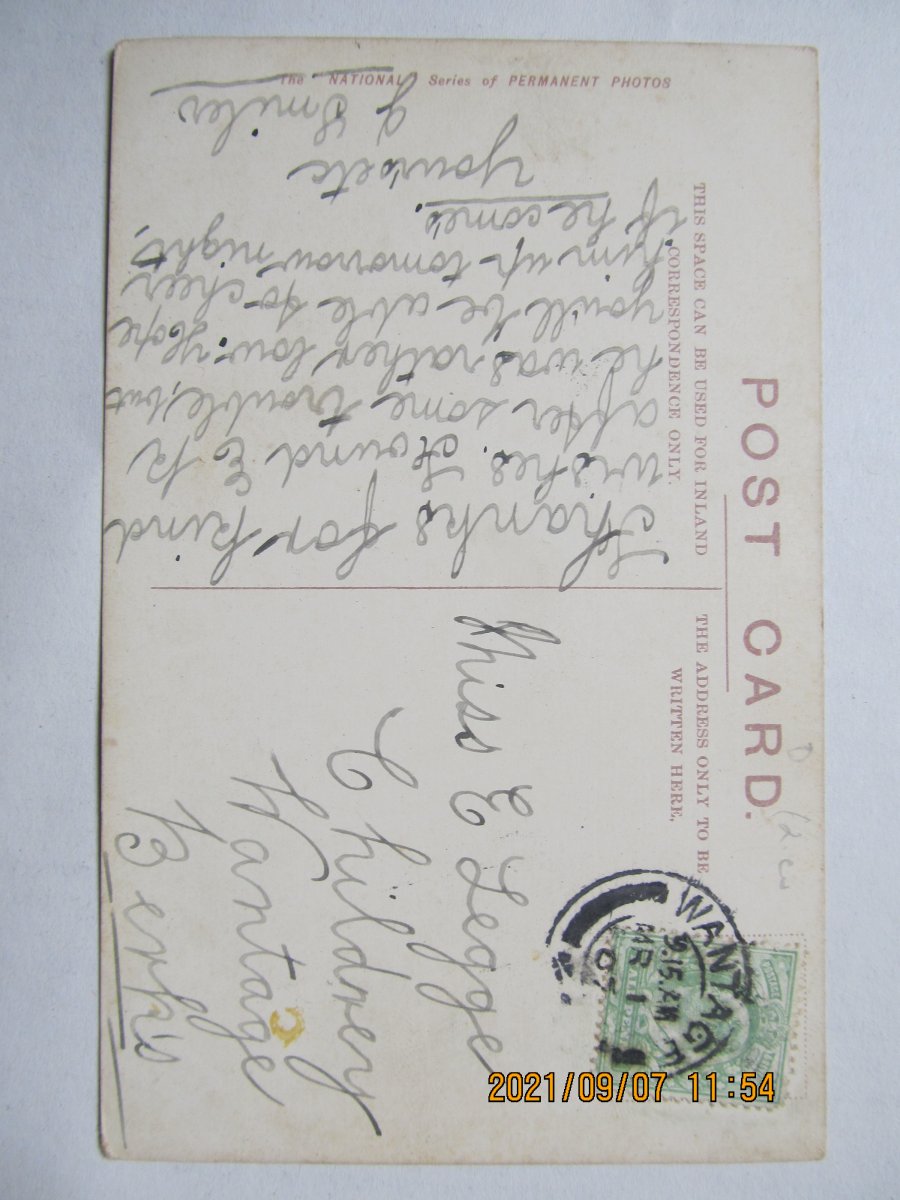 The NATIONAL Series of PERMANENT PHOTOS
POST CARD.
THIS SPACE CAN BE USED FOR INLAND
CORRESPONDENCE ONLY.
THE ADDRESS ONLY TO BE
WRITTEN HERE.
Thanks for kind
wishes. Found E
after some trouble, but
he was rather low. Hope
you'll be able to cheer
him up tomorrow night,
if he comes.
Yours etc
Miss E Legge
Childrey
Wantage
Berks
WANTAGE
9.15.AM
MR 1
2021/09/07 11:54